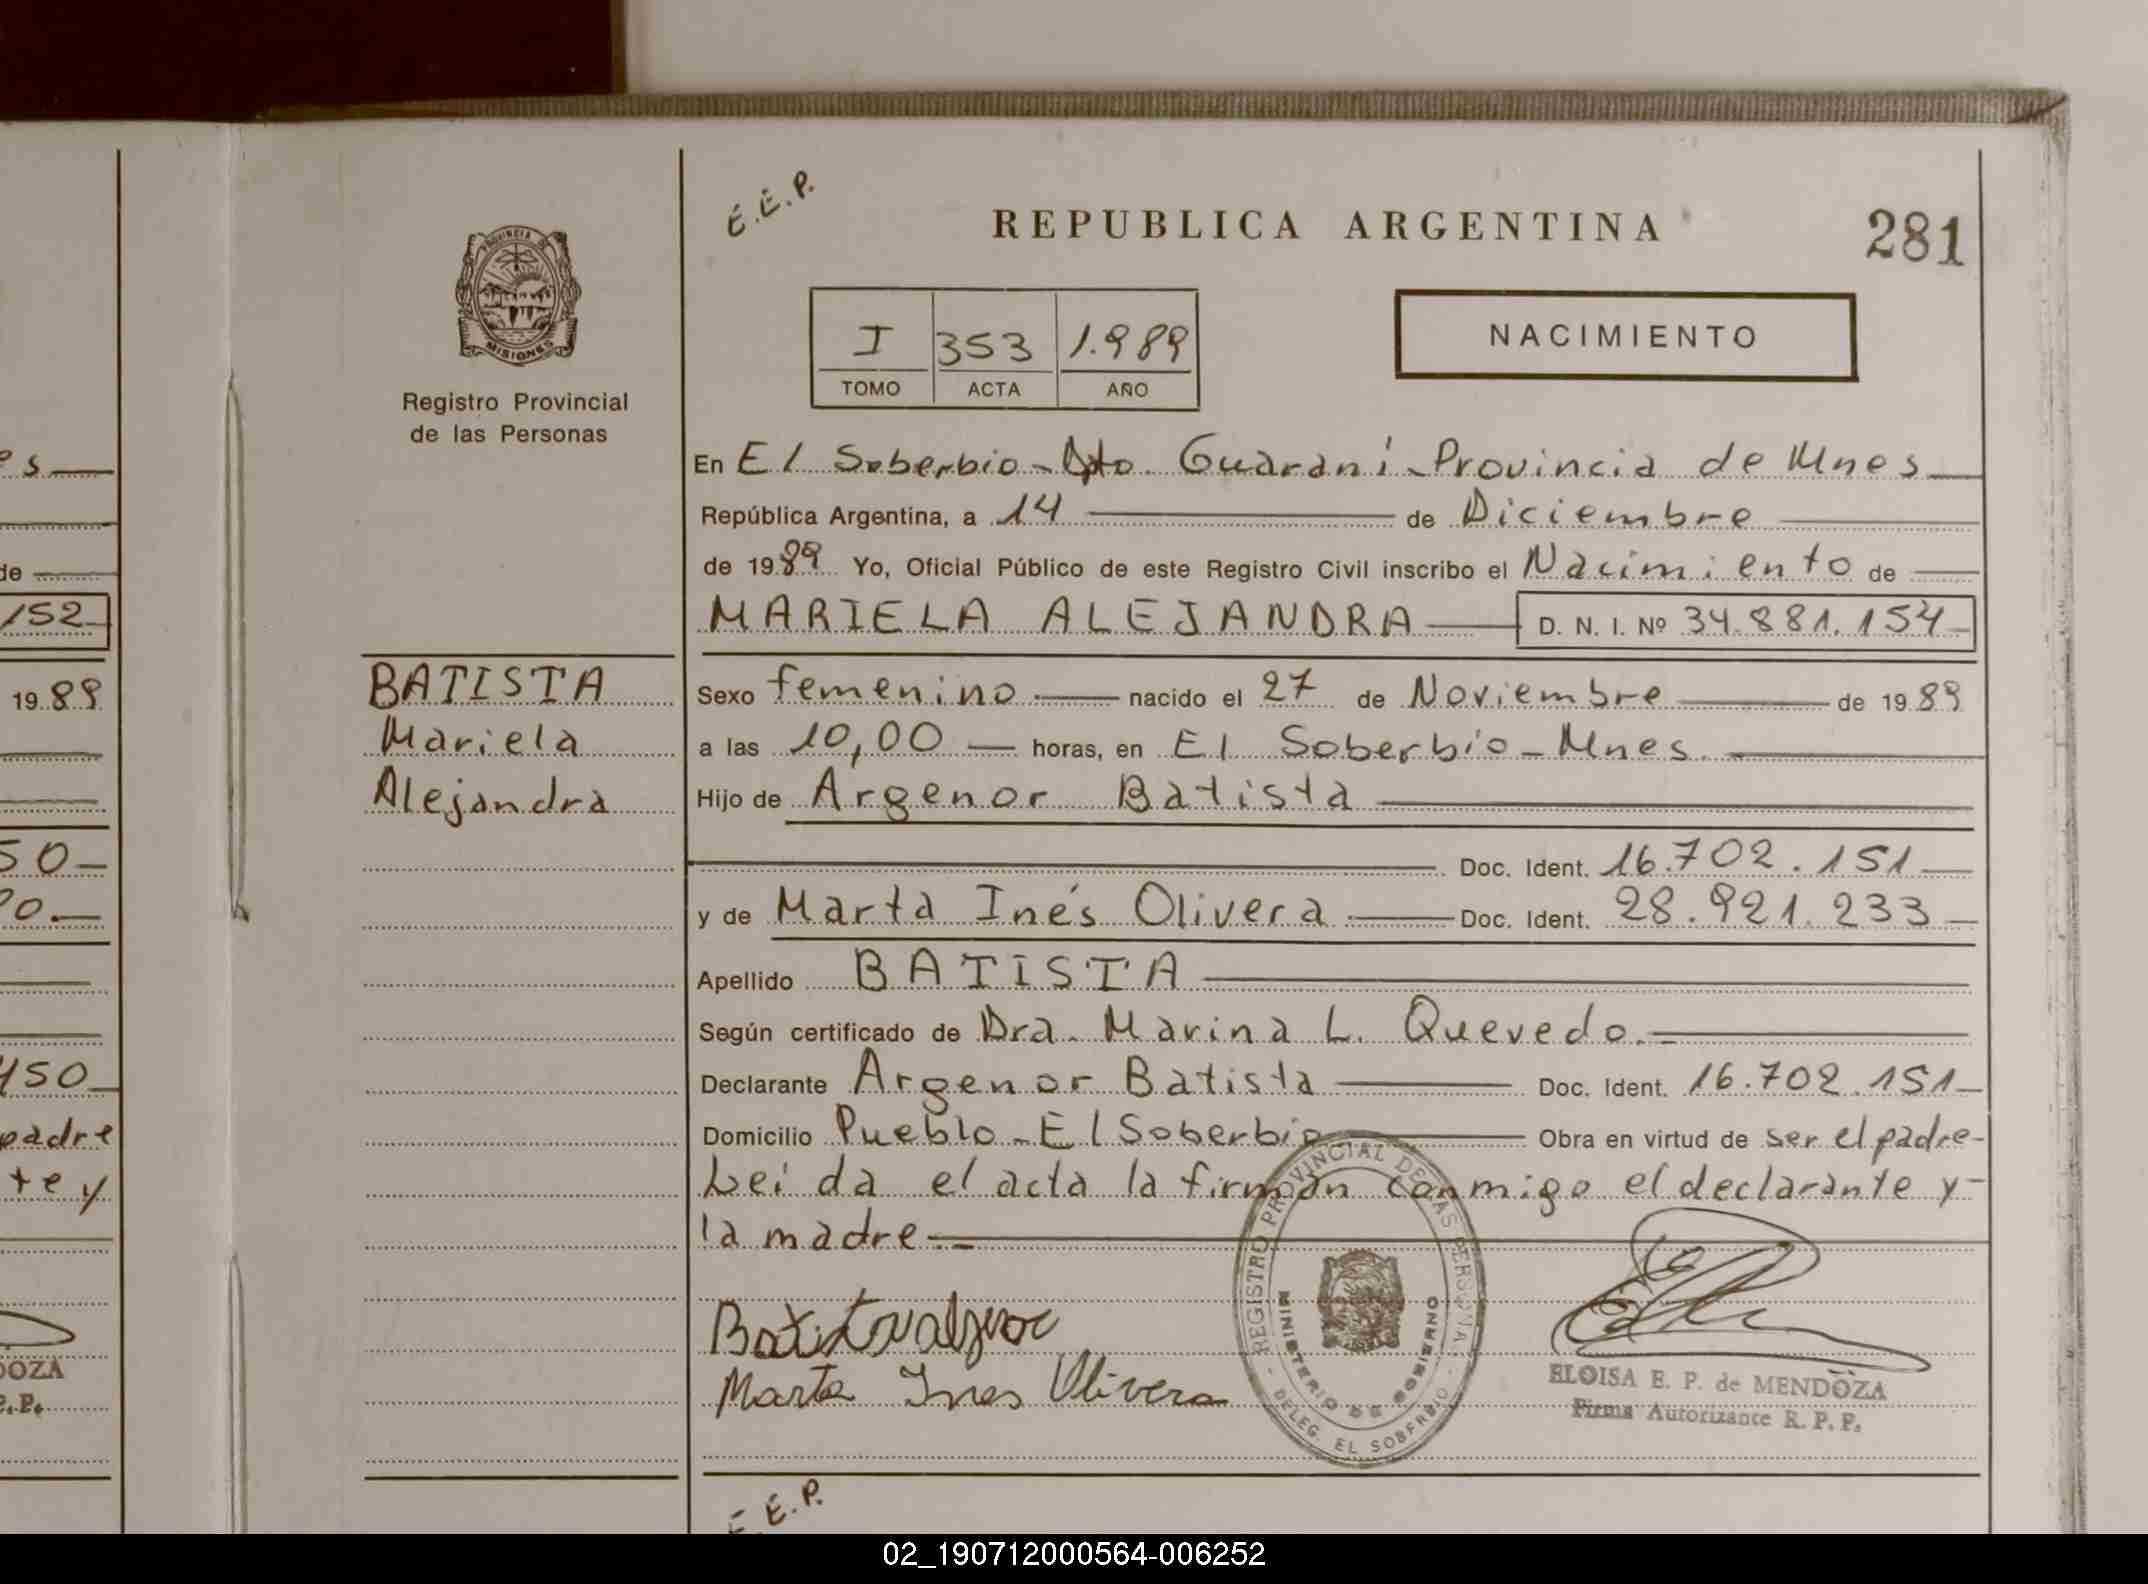 es
de
152
1989
50
90.
450
padre
te y
DOZA
P. P.
PROVINCIA DE
MISIONES
Registro Provincial
de las Personas
BATISTA
Mariela
Alejandra
E.E.P.
REPUBLICA ARGENTINA
281
I 353 1.989
TOMO ACTA AÑO
NACIMIENTO
En El Soberbio - Dpto Guaraní - Provincia de Mnes
República Argentina, a 14 de Diciembre
de 1989 Yo, Oficial Público de este Registro Civil inscribo el Nacimiento de
MARIELA ALEJANDRA D. N. I. Nº 34.881.154
Sexo femenino nacido el 27 de Noviembre de 1989
a las 10,00 horas, en El Soberbio - Mnes.
Hijo de Argenor Batista
Doc. Ident. 16.702.151
y de Marta Inés Olivera Doc. Ident. 28.921.233
Apellido BATISTA
Según certificado de Dra. Marina L. Quevedo.
Declarante Argenor Batista Doc. Ident. 16.702.151
Domicilio Pueblo - El Soberbio Obra en virtud de ser el padre-
Leída el acta la firman conmigo el declarante y-
la madre.
Marta Ines Olivera
REGISTRO PROVINCIAL DE LAS PERSONAS
MINISTERIO DE GOBIERNO
DELEG. EL SOBERBIO
ELOISA E. P. de MENDOZA
Firma Autorizante R. P. P.
E.E.P.
02_190712000564-006252